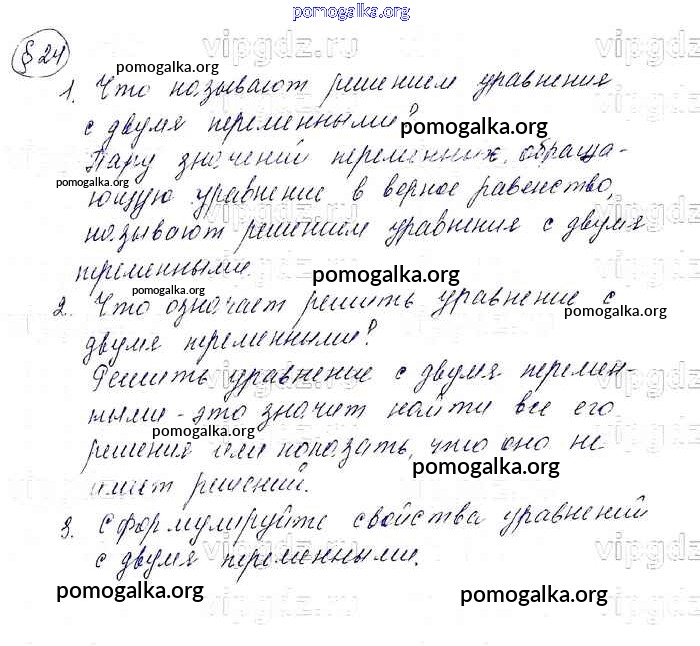 pomogalka.org
§ 24
vipgdz
pomogalka.org
1. Что называют решением уравнения
с двумя переменными?
pomogalka.org
Пару значений переменных, обраща-
pomogalka.org
ющую уравнение в верное равенство,
называют решением уравнения с двумя
переменными.
pomogalka.org
2. Что означает решить уравнение с
pomogalka.org
двумя переменными?
Решить уравнение с двумя перемен-
ными - это значит найти все его
pomogalka.org
решения или показать, что оно не
pomogalka.org
имеет решений.
3. Сформулируйте свойства уравнений
с двумя переменными.
pomogalka.org
pomogalka.org
vipgdz